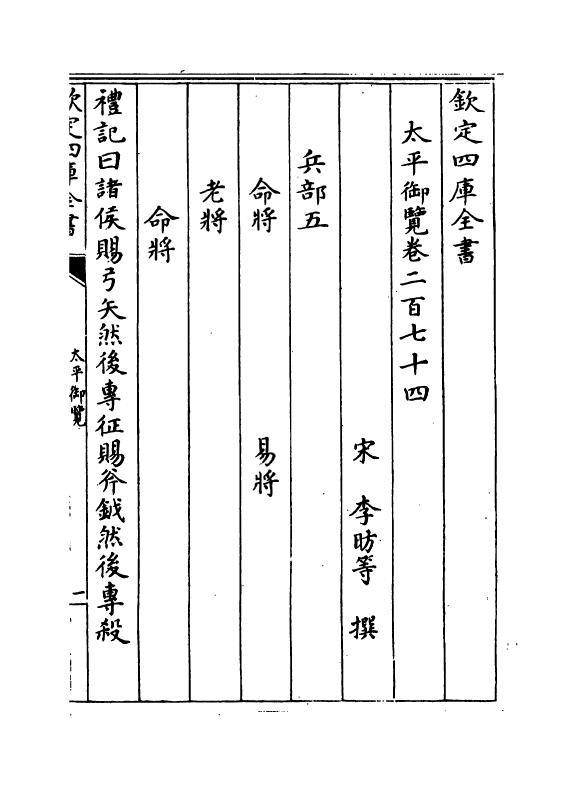 欽定四庫全書
太平御覽卷二百七十四
宋 李昉等 撰
兵部五
命將 易將
老將
命將
禮記曰諸侯賜弓矢然後專征賜斧鉞然後專殺
欽定四庫全書
太平御覽